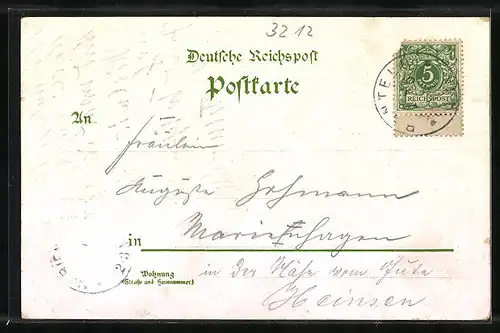 3212
Deutsche Reichspost
Postkarte
5
REICHSPOST
An
Fräulein
Auguste Hohmann
in Marienhagen
Wohnung
(Straße und Hausnummer)
in der Nähe vom Gute
Heinsen